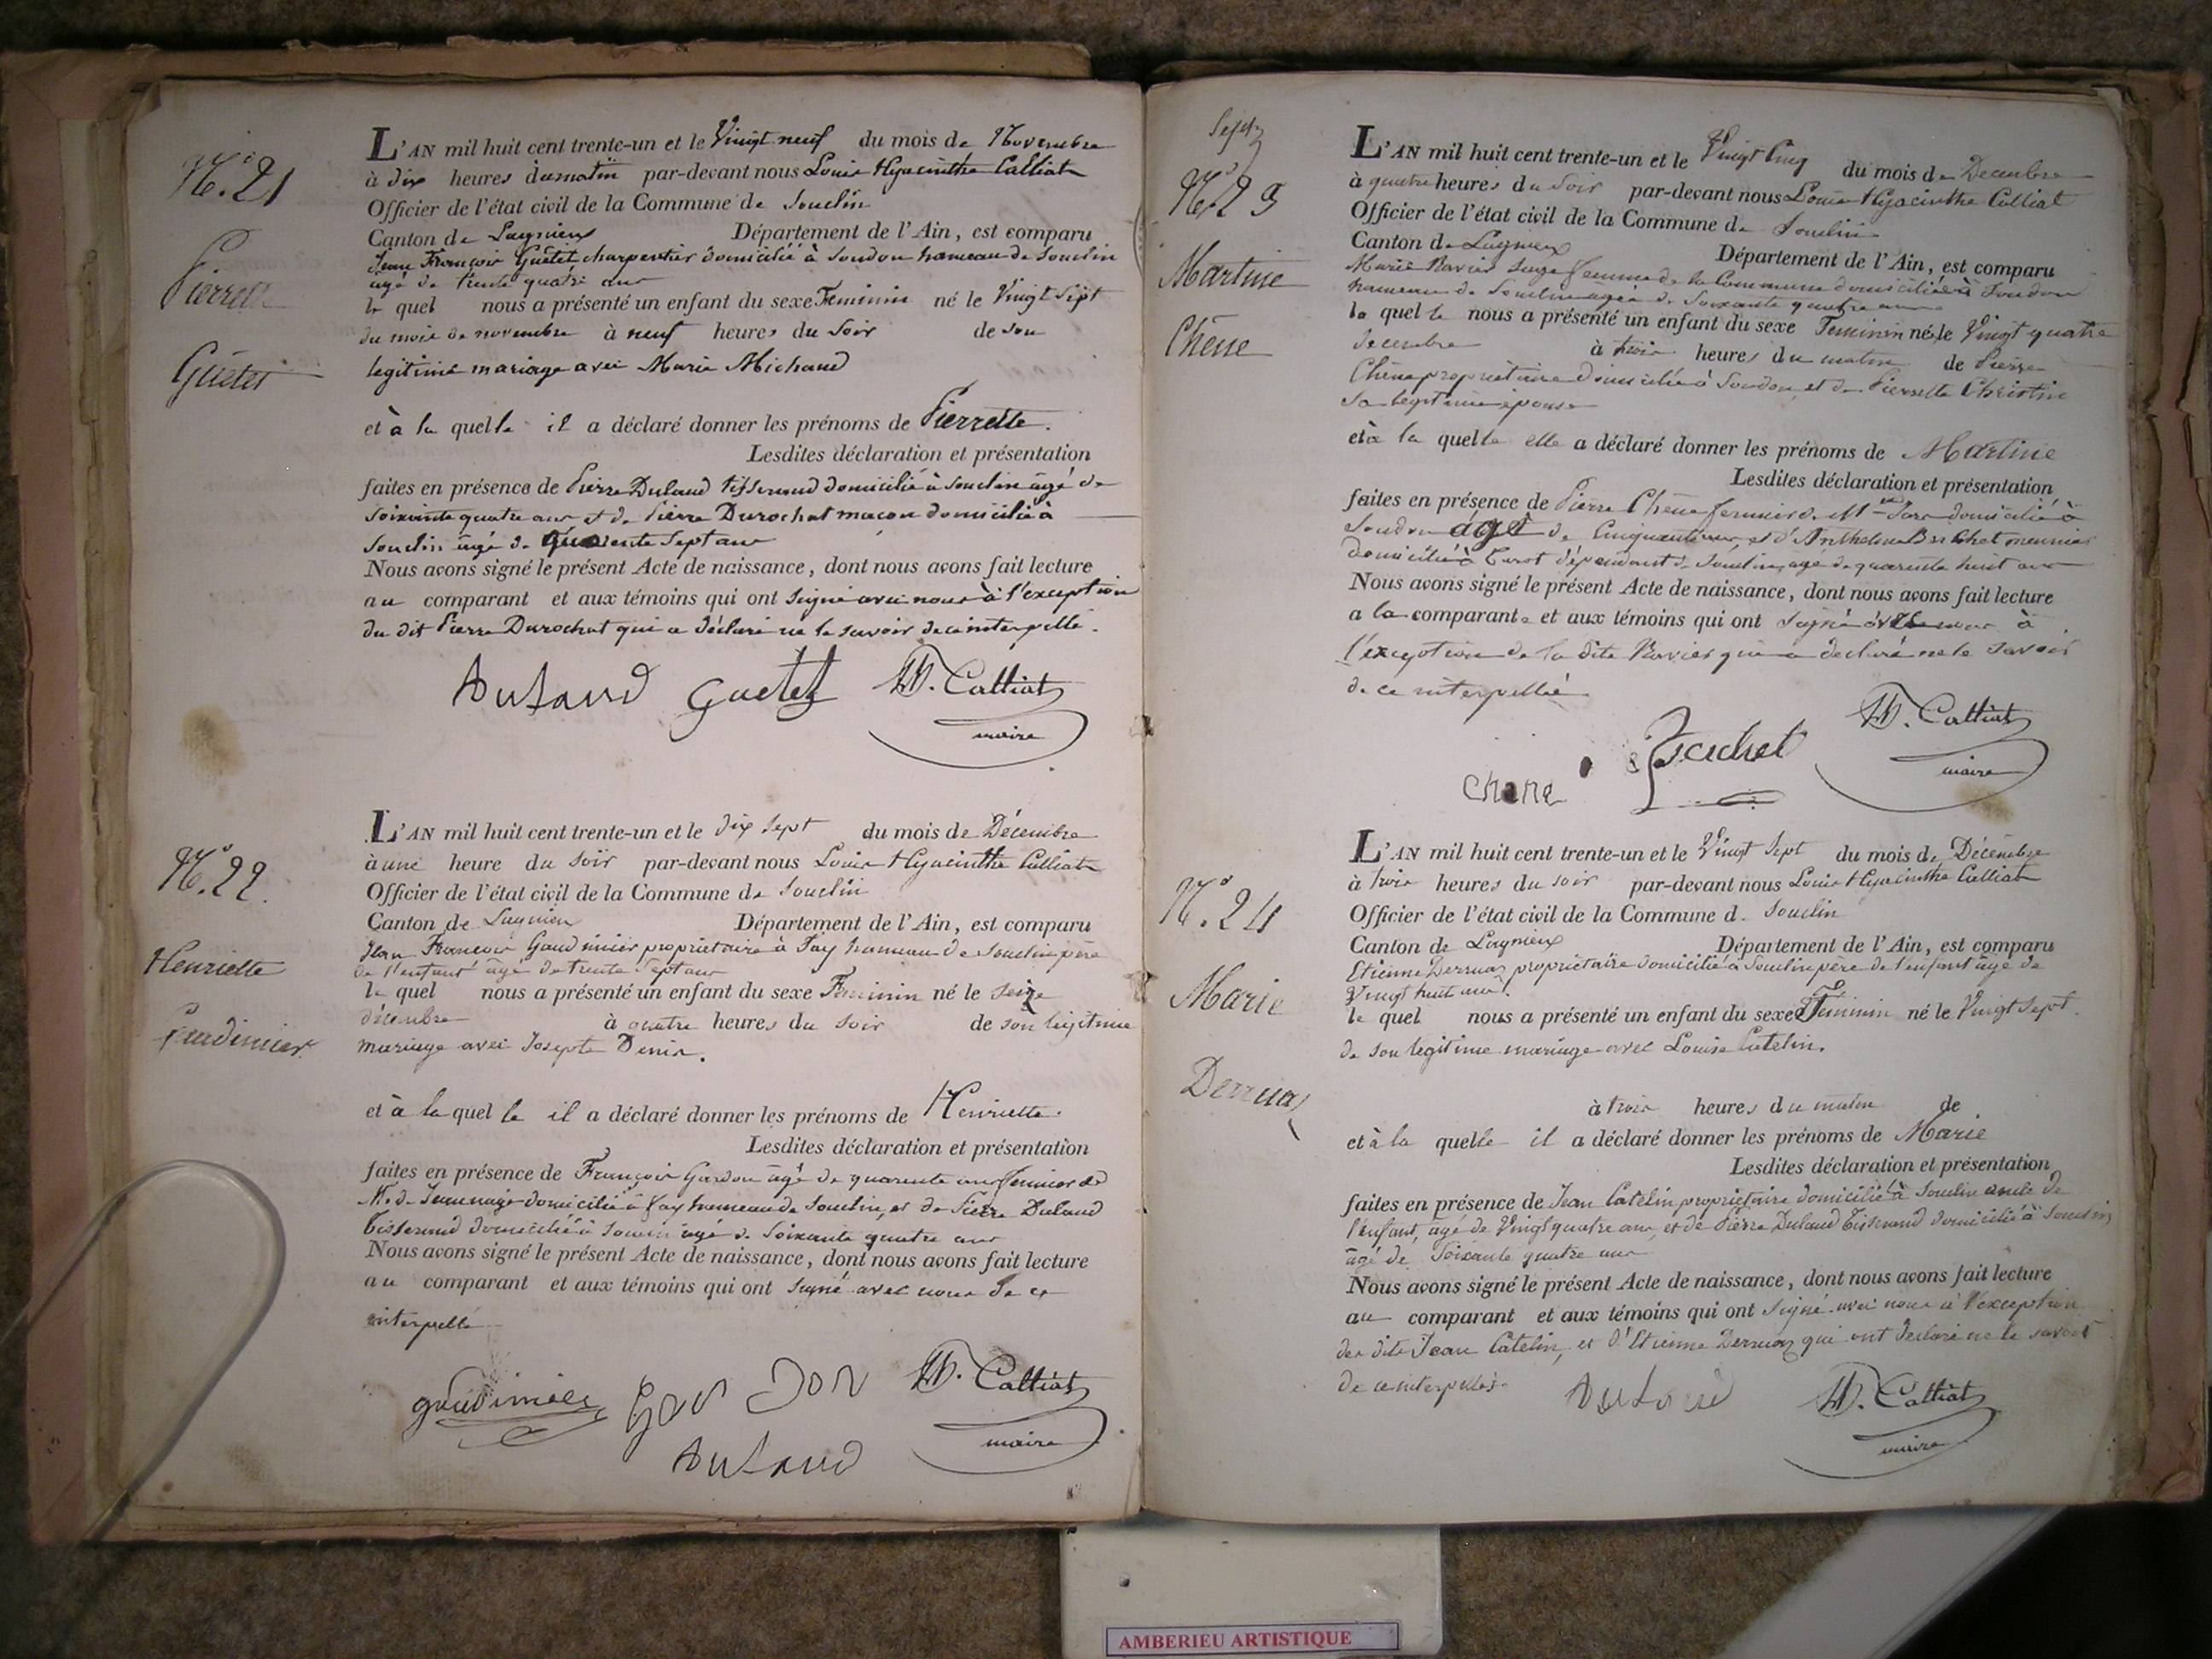 N.° 21
Pierrette
Guetet
L'AN mil huit cent trente-un et le Vingt neuf du mois de Novembre
à dix heures du matin par-devant nous Louis Hyacinthe Calliat
Officier de l'état civil de la Commune de Souclin
Canton de Lagnieu Département de l'Ain, est comparu
Jean François Guetet charpentier domicilié à Soudon hameau de Souclin
agé de trente quatre ans
le quel nous a présenté un enfant du sexe Feminin né le Vingt Sept
du mois de novembre à neuf heures du Soir de son
legitime mariage avec Marie Michaud
et à la quelle il a déclaré donner les prénoms de Pierrette.
Lesdites déclaration et présentation
faites en présence de Pierre Dulaud tisserand domicilié à Souclin âgé de
Soixante quatre ans et de Pierre Durochat macon domicilié à
Souclin âgé de Quarente Sept ans
Nous avons signé le présent Acte de naissance, dont nous avons fait lecture
au comparant et aux témoins qui ont signé avec nous à l'exception
du dit Pierre Durochat qui a déclaré ne le savoir de ce interpellé.
Dulaud Guetet H. Calliat
maire
N.° 22.
Henriette
Gaudimier
L'AN mil huit cent trente-un et le dix sept du mois de Décembre
à une heure du soir par-devant nous Louis Hyacinthe Calliat
Officier de l'état civil de la Commune de Souclin
Canton de Lagnieu Département de l'Ain, est comparu
Jean François Gaudimier proprietaire à Fay hameau de Souclin père
de l'enfant âgé de trente Sept ans
le quel nous a présenté un enfant du sexe Feminin né le seize
décembre à quatre heures du soir de son légitime
mariage avec Josepte Denis.
et à la quel le il a déclaré donner les prénoms de Henriette.
Lesdites déclaration et présentation
faites en présence de François Gardon âgé de quarente ans fermier de
M. de domicilié à Fay hameau de Souclin, et de Pierre Dulaud
Tisserand domicilié à Souclin âgé de Soixante quatre ans
Nous avons signé le présent Acte de naissance, dont nous avons fait lecture
au comparant et aux témoins qui ont signé avec nous de ce
interpellé
gaudimier Gardon H. Calliat
Dulaud maire
Sept
N.° 23
Martine
Chêne
L'AN mil huit cent trente-un et le Vingt Cinq du mois de Decembre
à quatre heures du Soir par-devant nous Louis Hyacinthe Calliat
Officier de l'état civil de la Commune de Souclin
Canton de Lagnieu Département de l'Ain, est comparu
Marie Ravier Sage femme de la Commune domiciliée à Soudon
hameau de Souclin agée de Soixante quatre ans
la quel le nous a présenté un enfant du sexe Feminin né le Vingt quatre
Decembre à trois heures du matin de Pierre
Chêne proprietaire domicilié à Soudon, et de Pierrette Christin
sa legitime epouse
et à la quelle elle a déclaré donner les prénoms de Martine
Lesdites déclaration et présentation
faites en présence de Pierre Chêne fermier de domicilié à
Soudon âgé de et d'Anthelme Brachet meunier
domicilié à dépendant de Souclin, agé de quarente huit ans
Nous avons signé le présent Acte de naissance, dont nous avons fait lecture
a la comparante et aux témoins qui ont signé avec nous à
l'exception de la dite Ravier qui a declaré ne le savoir
de ce interpellée
chene Brachet H. Calliat
maire
N.° 24
Marie
Derruaz
L'AN mil huit cent trente-un et le Vingt Sept du mois de Décembre
à trois heures du soir par-devant nous Louis Hyacinthe Calliat
Officier de l'état civil de la Commune de Souclin
Canton de Lagnieu Département de l'Ain, est comparu
Etienne Derruaz proprietaire domicilié à Souclin père de l'enfant âgé de
Vingt huit ans.
le quel nous a présenté un enfant du sexe Feminin né le Vingt Sept.
de son legitime mariage avec Louise Catelin.
à trois heures du matin de
et à la quelle il a déclaré donner les prénoms de Marie
Lesdites déclaration et présentation
faites en présence de Jean Catelin, proprietaire domicilié à Souclin oncle de
l'enfant, âgé de Vingt quatre ans, et de Pierre Dulaud Tisserand domicilié à Souclin
âgé de Soixante quatre ans
Nous avons signé le présent Acte de naissance, dont nous avons fait lecture
au comparant et aux témoins qui ont signé avec nous à l'exception
des dits Jean Catelin, et d'Etienne Derruaz qui ont declaré ne le savoir
de ce interpellés.
Dulaud H. Calliat
maire
AMBERIEU ARTISTIQUE